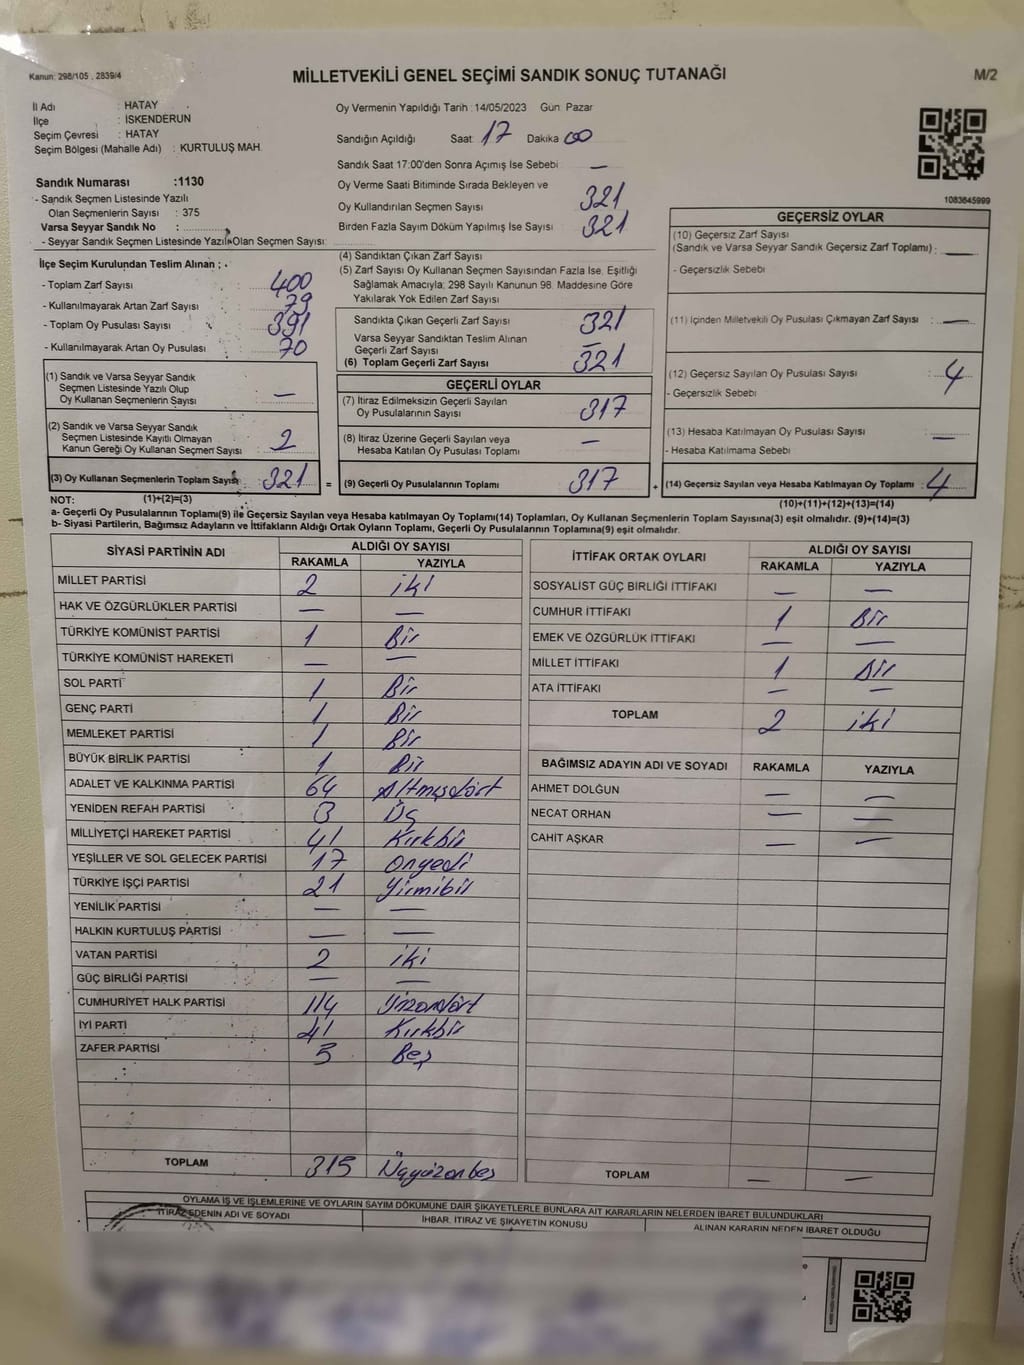 Kanun: 298/105 , 2839/4
MİLLETVEKİLİ GENEL SEÇİMİ SANDIK SONUÇ TUTANAĞI
M/2
İl Adı : HATAY
İlçe : İSKENDERUN
Seçim Çevresi : HATAY
Seçim Bölgesi (Mahalle Adı) : KURTULUŞ MAH.
Sandık Numarası :1130
- Sandık Seçmen Listesinde Yazılı
Olan Seçmenlerin Sayısı : 375
Varsa Seyyar Sandık No :
- Seyyar Sandık Seçmen Listesinde Yazılı Olan Seçmen Sayısı:
İlçe Seçim Kurulundan Teslim Alınan ;
- Toplam Zarf Sayısı 400
- Kullanılmayarak Artan Zarf Sayısı 79
- Toplam Oy Pusulası Sayısı 391
- Kullanılmayarak Artan Oy Pusulası 70
(1) Sandık ve Varsa Seyyar Sandık
Seçmen Listesinde Yazılı Olup
Oy Kullanan Seçmenlerin Sayısı —
(2) Sandık ve Varsa Seyyar Sandık
Seçmen Listesinde Kayıtlı Olmayan
Kanun Gereği Oy Kullanan Seçmen Sayısı 2
(3) Oy Kullanan Seçmenlerin Toplam Sayısı 321 =
Oy Vermenin Yapıldığı Tarih : 14/05/2023 Gün: Pazar
Sandığın Açıldığı Saat: 17 Dakika 00
Sandık Saat 17:00'den Sonra Açımış İse Sebebi : —
Oy Verme Saati Bitiminde Sırada Bekleyen ve
Oy Kullandırılan Seçmen Sayısı 321
Birden Fazla Sayım Döküm Yapılmış İse Sayısı : 321
(4) Sandıktan Çıkan Zarf Sayısı
(5) Zarf Sayısı Oy Kullanan Seçmen Sayısından Fazla İse, Eşitliği
Sağlamak Amacıyla; 298 Sayılı Kanunun 98. Maddesine Göre
Yakılarak Yok Edilen Zarf Sayısı
Sandıkta Çıkan Geçerli Zarf Sayısı 321
Varsa Seyyar Sandıktan Teslim Alınan
Geçerli Zarf Sayısı —
(6) Toplam Geçerli Zarf Sayısı 321
GEÇERLİ OYLAR
(7) İtiraz Edilmeksizin Geçerli Sayılan
Oy Pusulalarının Sayısı 317
(8) İtiraz Üzerine Geçerli Sayılan veya
Hesaba Katılan Oy Pusulası Toplamı —
(9) Geçerli Oy Pusulalarının Toplamı 317 +
1083645999
GEÇERSİZ OYLAR
(10) Geçersiz Zarf Sayısı
(Sandık ve Varsa Seyyar Sandık Geçersiz Zarf Toplamı) : —
- Geçersizlik Sebebi
(11) İçinden Milletvekili Oy Pusulası Çıkmayan Zarf Sayısı : —
(12) Geçersiz Sayılan Oy Pusulası Sayısı : 4
- Geçersizlik Sebebi
(13) Hesaba Katılmayan Oy Pusulası Sayısı : —
- Hesaba Katılmama Sebebi
(14) Geçersiz Sayılan veya Hesaba Katılmayan Oy Toplamı : 4
NOT: (1)+(2)=(3)
(10)+(11)+(12)+(13)=(14)
a- Geçerli Oy Pusulalarının Toplamı(9) ile Geçersiz Sayılan veya Hesaba katılmayan Oy Toplamı(14) Toplamları, Oy Kullanan Seçmenlerin Toplam Sayısına(3) eşit olmalıdır. (9)+(14)=(3)
b- Siyasi Partilerin, Bağımsız Adayların ve İttifakların Aldığı Ortak Oyların Toplamı, Geçerli Oy Pusulalarının Toplamına(9) eşit olmalıdır.
SİYASİ PARTİNİN ADI ALDIĞI OY SAYISI
RAKAMLA YAZIYLA
MİLLET PARTİSİ 2 iki
HAK VE ÖZGÜRLÜKLER PARTİSİ — —
TÜRKİYE KOMÜNİST PARTİSİ 1 Bir
TÜRKİYE KOMÜNİST HAREKETİ — —
SOL PARTİ 1 Bir
GENÇ PARTİ 1 Bir
MEMLEKET PARTİSİ 1 Bir
BÜYÜK BİRLİK PARTİSİ 1 Bir
ADALET VE KALKINMA PARTİSİ 64 Altmışdört
YENİDEN REFAH PARTİSİ 3 Üç
MİLLİYETÇİ HAREKET PARTİSİ 41 Kırkbir
YEŞİLLER VE SOL GELECEK PARTİSİ 17 Onyedi
TÜRKİYE İŞÇİ PARTİSİ 21 Yirmibir
YENİLİK PARTİSİ — —
HALKIN KURTULUŞ PARTİSİ — —
VATAN PARTİSİ 2 iki
GÜÇ BİRLİĞİ PARTİSİ — —
CUMHURİYET HALK PARTİSİ 114 Yüzondört
İYİ PARTİ 41 Kırkbir
ZAFER PARTİSİ 5 Beş
TOPLAM 315 Üçyüzonbeş
İTTİFAK ORTAK OYLARI ALDIĞI OY SAYISI
RAKAMLA YAZIYLA
SOSYALİST GÜÇ BİRLİĞİ İTTİFAKI — —
CUMHUR İTTİFAKI 1 Bir
EMEK VE ÖZGÜRLÜK İTTİFAKI — —
MİLLET İTTİFAKI 1 Bir
ATA İTTİFAKI — —
TOPLAM 2 iki
BAĞIMSIZ ADAYIN ADI VE SOYADI RAKAMLA YAZIYLA
AHMET DOLĞUN — —
NECAT ORHAN — —
CAHİT AŞKAR — —
TOPLAM — —
OYLAMA İŞ VE İŞLEMLERİNE VE OYLARIN SAYIM DÖKÜMÜNE DAİR ŞİKAYETLERLE BUNLARA AİT KARARLARIN NELERDEN İBARET BULUNDUKLARI
İTİRAZ EDENİN ADI VE SOYADI İHBAR, İTİRAZ VE ŞİKAYETİN KONUSU ALINAN KARARIN NEDEN İBARET OLDUĞU